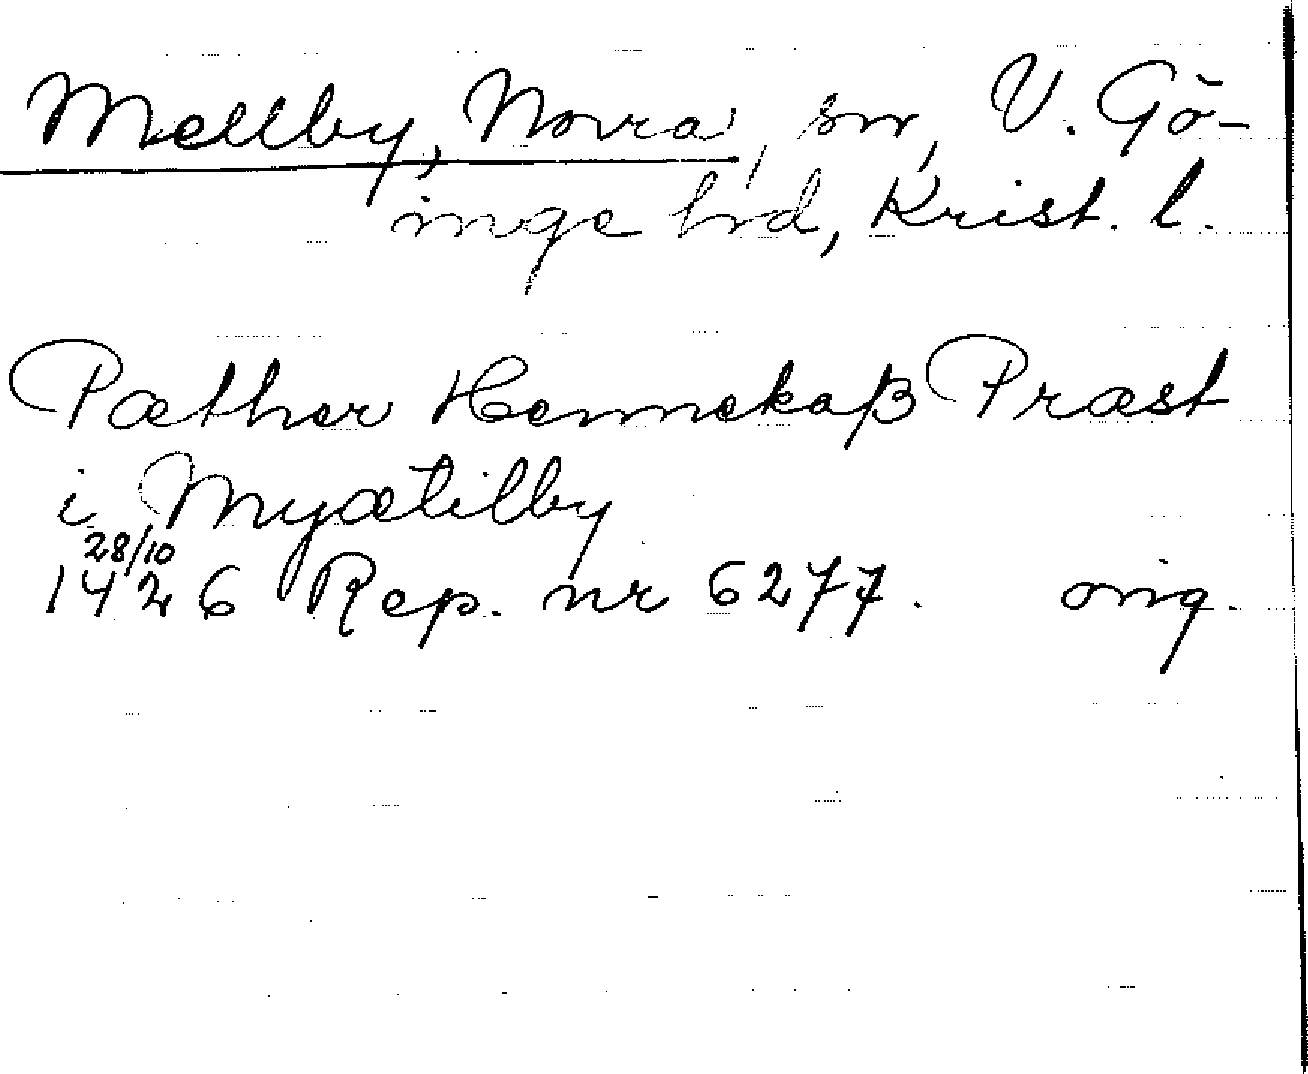 Mellby, Norra, sn, V. Gö-
inge hrd, Krist. l.
Pæther Hennekaß Præst
i Myætilby
28/10
1426 Rep. nr 6277. orig.